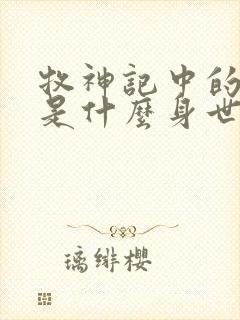 牧神记中的
是什麽身世
璃绯樱